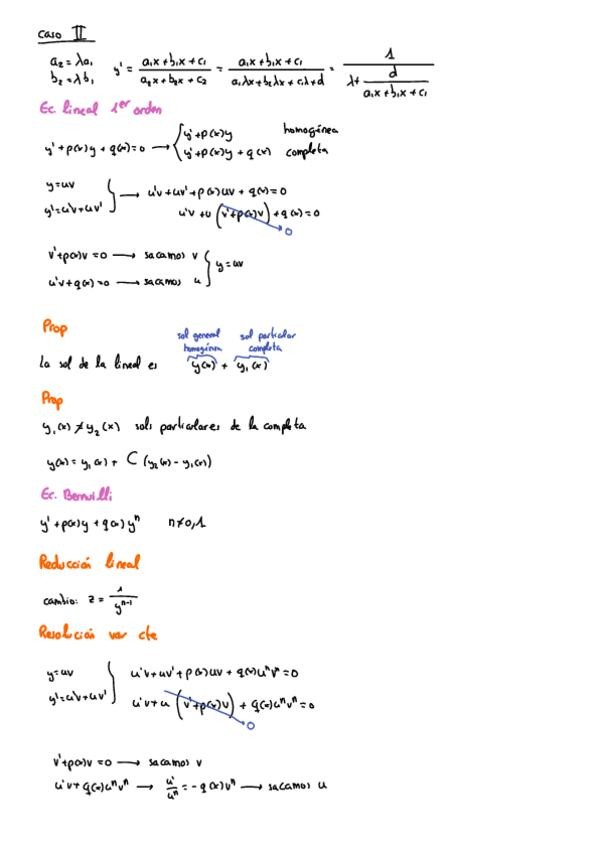 Caso II
a₂ = λa₁
b₂ = λb₁
y' = (a₁x + b₁x + c₁)/(a₂x + b₂x + c₂) = (a₁x + b₁x + c₁)/(a₁λx + b₂λx + c₁λ + d) = 1/(λ + d/(a₁x + b₁x + c₁))
Ec. lineal 1er orden
y' + p(x)y + q(x) = 0 → { y' + p(x)y homogénea
y' + p(x)y + q(x) completa
y = uv
y' = u'v + uv' } → u'v + uv' + p(x)uv + q(x) = 0
u'v + u (v' + p(x)v) + q(x) = 0
0
v' + p(x)v = 0 → sacamos v
u'v + q(x) = 0 → sacamos u } y = uv
Prop
sol general sol particular
homogénea completa
La sol de la lineal es y(x) + y₁(x)
Prop
y₁(x) ≠ y₂(x) sols particulares de la completa
y(x) = y₁(x) + C (y₂(x) - y₁(x))
Ec. Bernuilli
y' + p(x)y + q(x)yⁿ n ≠ 0,1
Reducción lineal
cambio: z = 1/yⁿ⁻¹
Resolución var cte
y = uv
y' = u'v + uv' } u'v + uv' + p(x)uv + q(x)uⁿvⁿ = 0
u'v + u (v' + p(x)v) + q(x)uⁿvⁿ = 0
0
v' + p(x)v = 0 → sacamos v
u'v + q(x)uⁿvⁿ → u'/uⁿ = -q(x)vⁿ → sacamos u